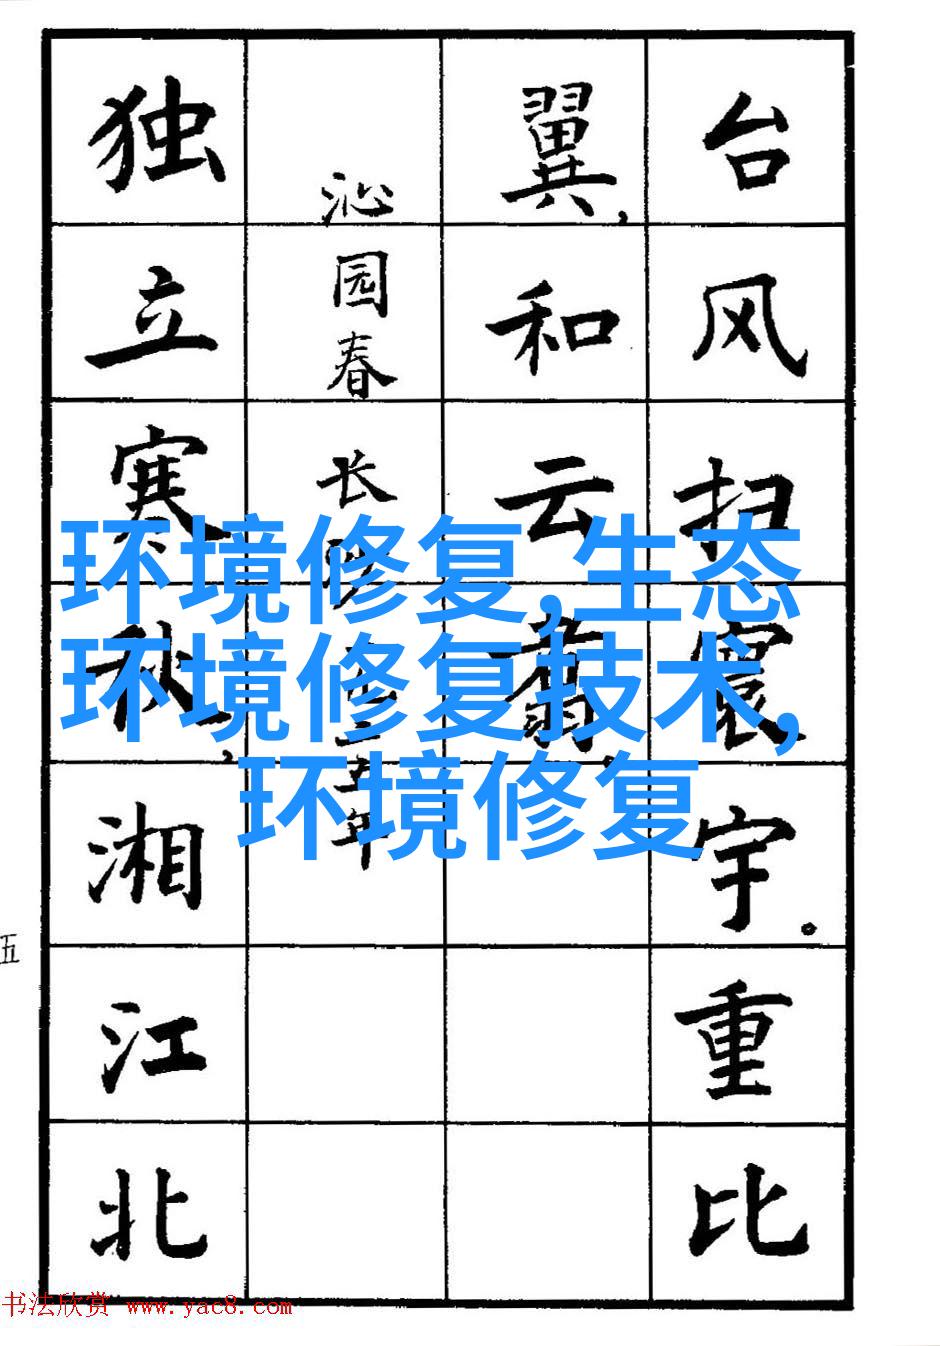 台风扫寰宇。重比
翼,和云翥。
沁园春
长沙
一九二五年
独立寒秋,湘江北
五
环境修复,生态
环境修复技术,
环境修复
书法欣赏 www.yac8.com